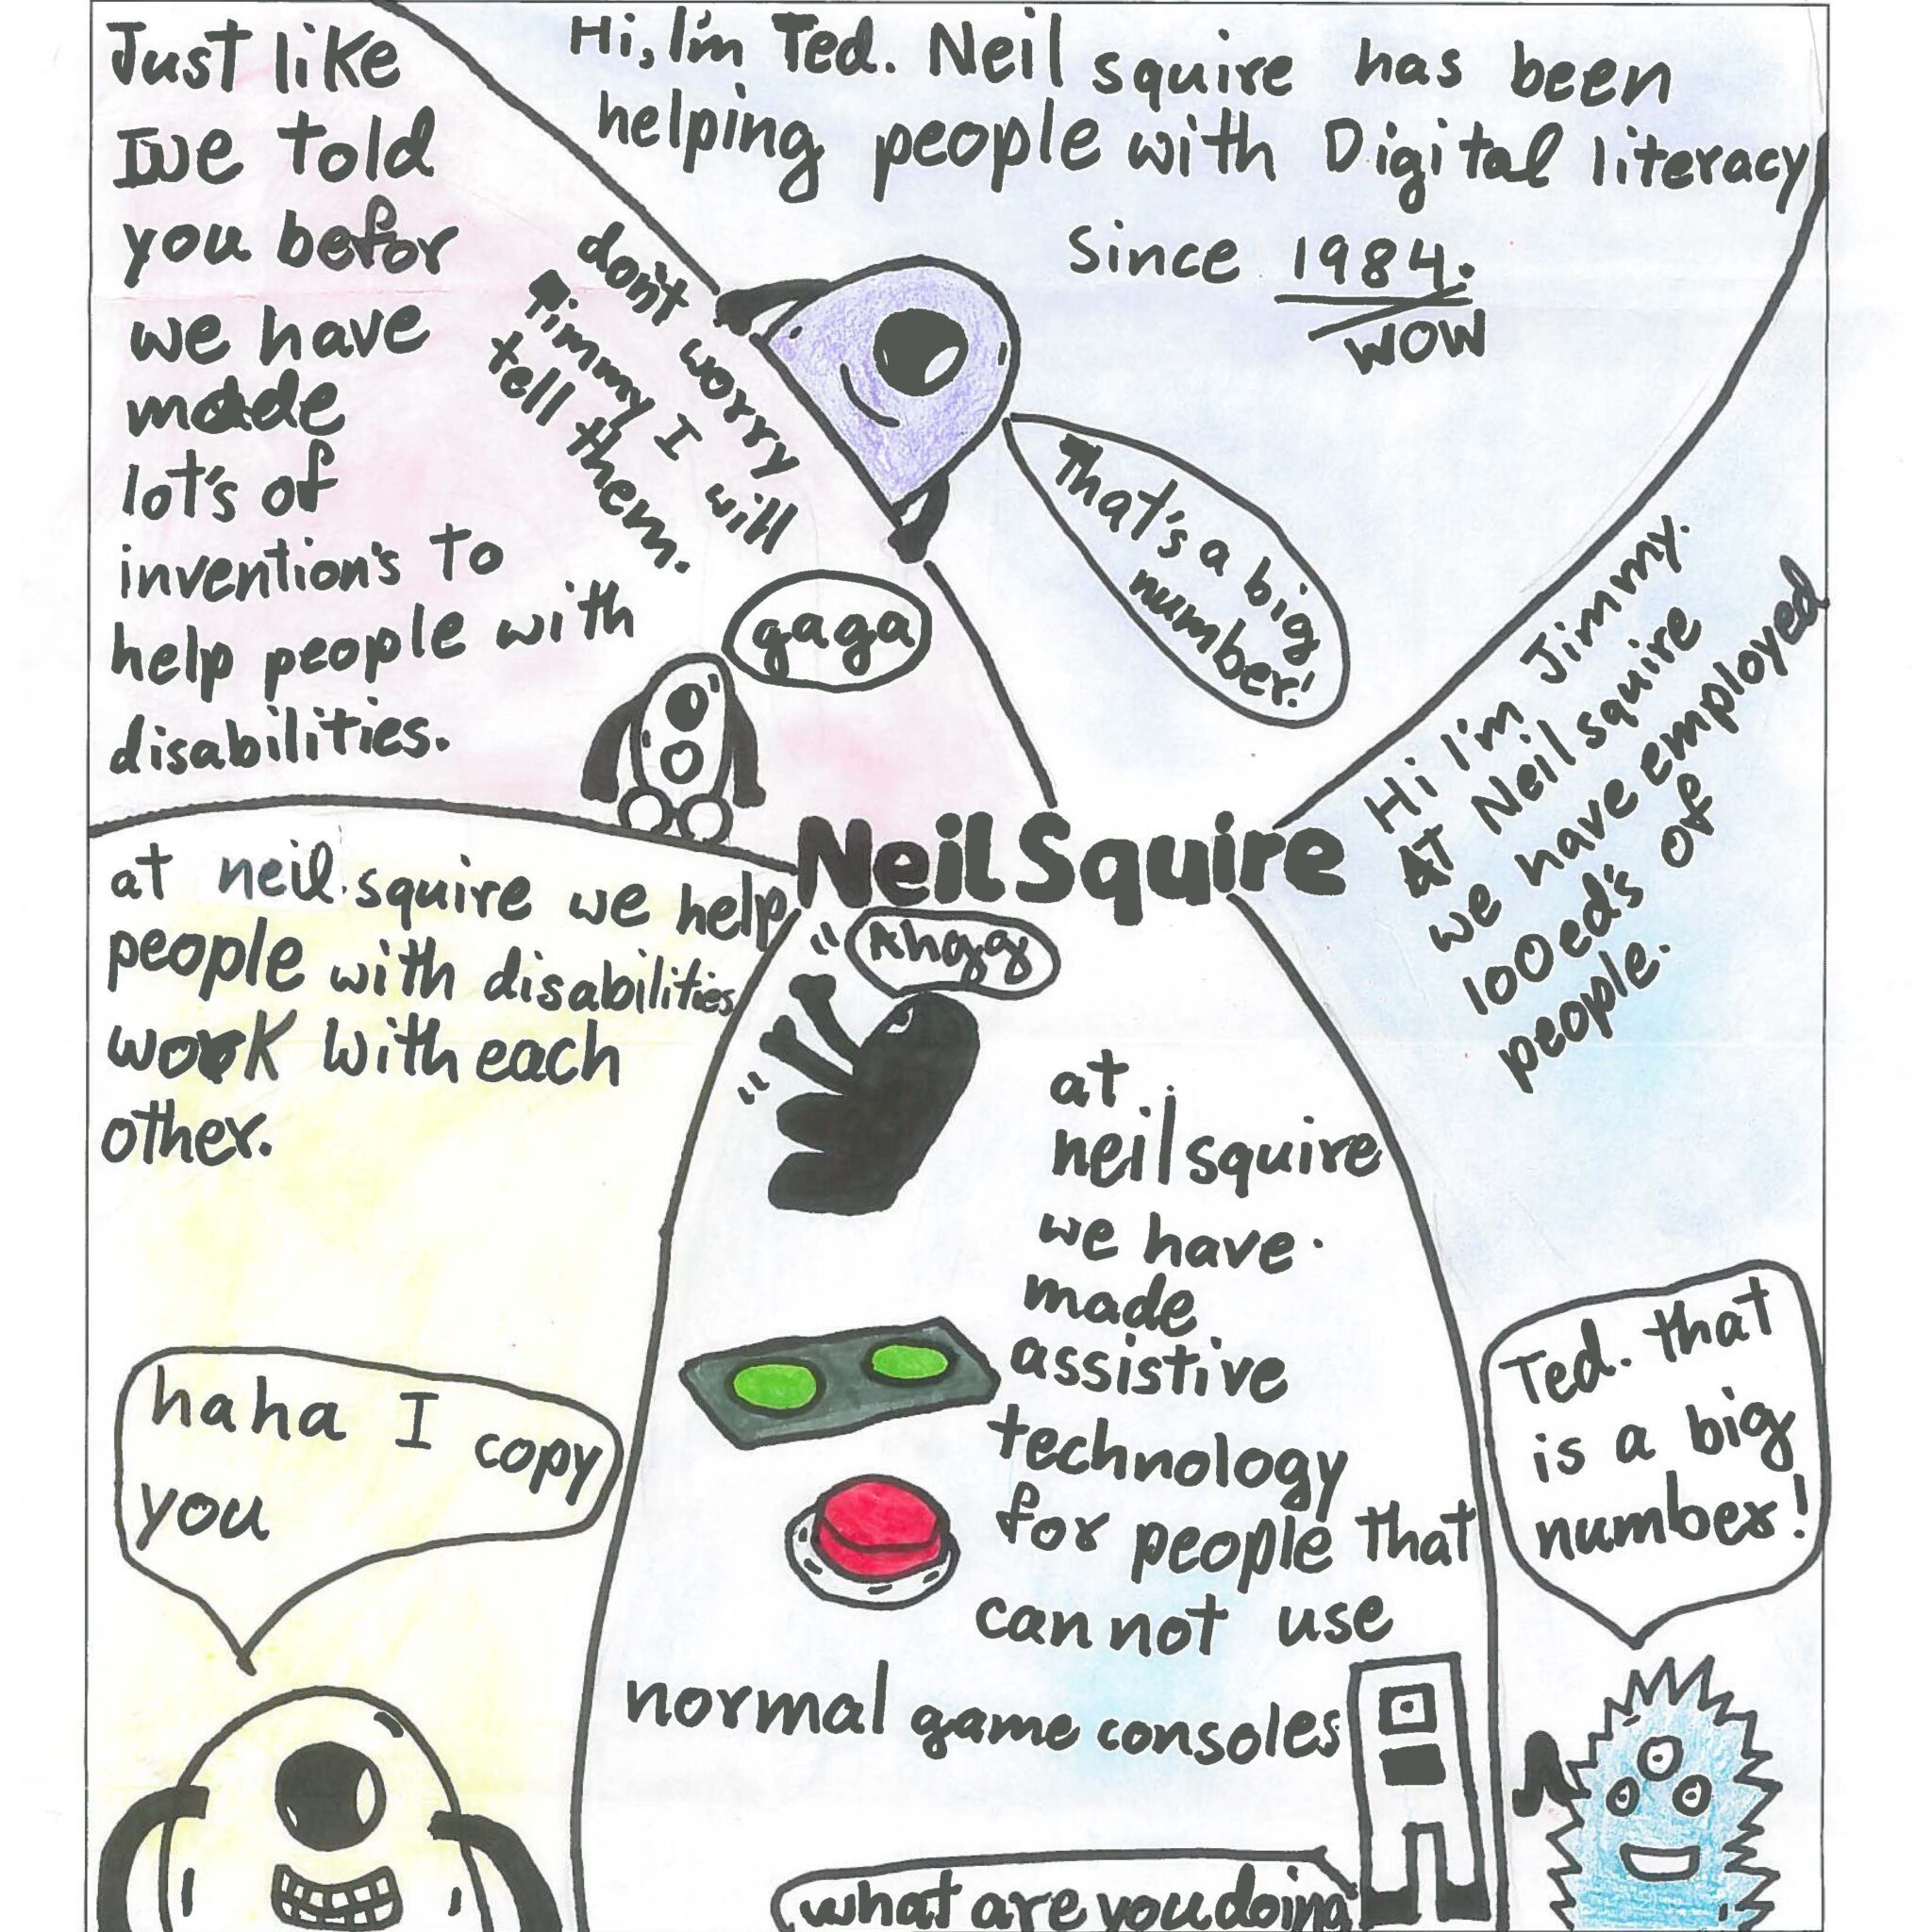 Just like
Iwe told
you befor
we have
made
lot's of
invention's to
help people with
disabilities.
don't worry
Timmy I will
tell them.
gaga
Hi, I'm Ted. Neil squire has been
helping people with Digital literacy
since 1984.
WOW
That's a big
number!
Hi I'm Jimmy.
AT Neil squire
we have employed
100ed's of
people.
Neil Squire
at neil squire we help
people with disabilities
work with each
other.
haha I copy
you
Ahgg
at
neil squire
we have
made
assistive
technology
for people that
can not use
normal game consoles
what are you doing
Ted. that
is a big
number!